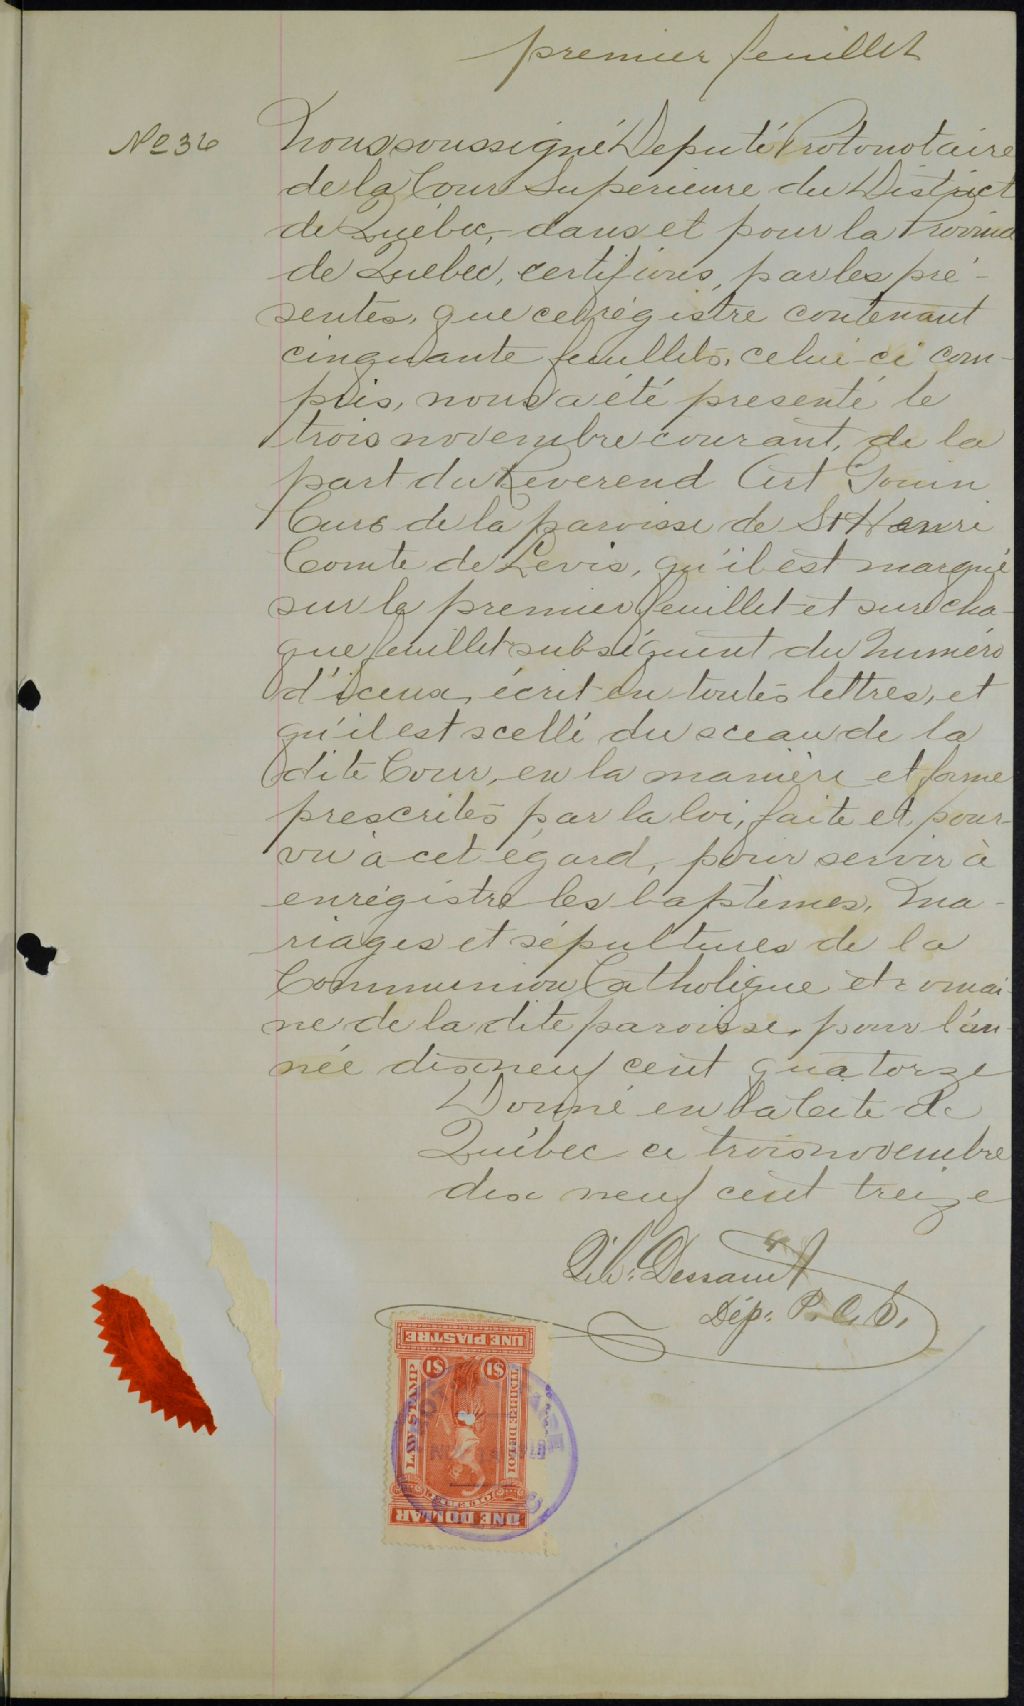 premier feuillet
No 36
Nous soussigné Deputé Protonotaire
de la Cour Superieure du District
de Québec, dans et pour la Province
de Quebec, certifions, par les pré-
sentes, que ce régistre contenant
cinquante feuillets, celui ci com-
pris, nous a été presenté le
trois novembre courant, de la
part du Reverend Art Gouin
Curé de la paroisse de St Henri
Comte de Levis, qu'il est marqué
sur le premier feuillet et sur cha-
que feuillet subséquent du Numéro
d'iceux, écrit en toutes lettres, et
qu'il est scellé du sceau de la
dite Cour, en la maniere et forme
prescrites par la loi, faite et pour-
vu à cet égard, pour servir à
enrégistre les baptêmes, Ma-
riages et sépultures de la
Communion Catholique et romai-
ne de la dite paroisse, pour l'an-
née dix neuf cent quatorze
Donné en la Cite de
Québec ce trois novembre
dix neuf cent treize
Dessault
Dép. P. C. S.
UNE PIASTRE
$1 $1
LAW STAMP
TIMBRE DE LOI
QUEBEC
ONE DOLLAR